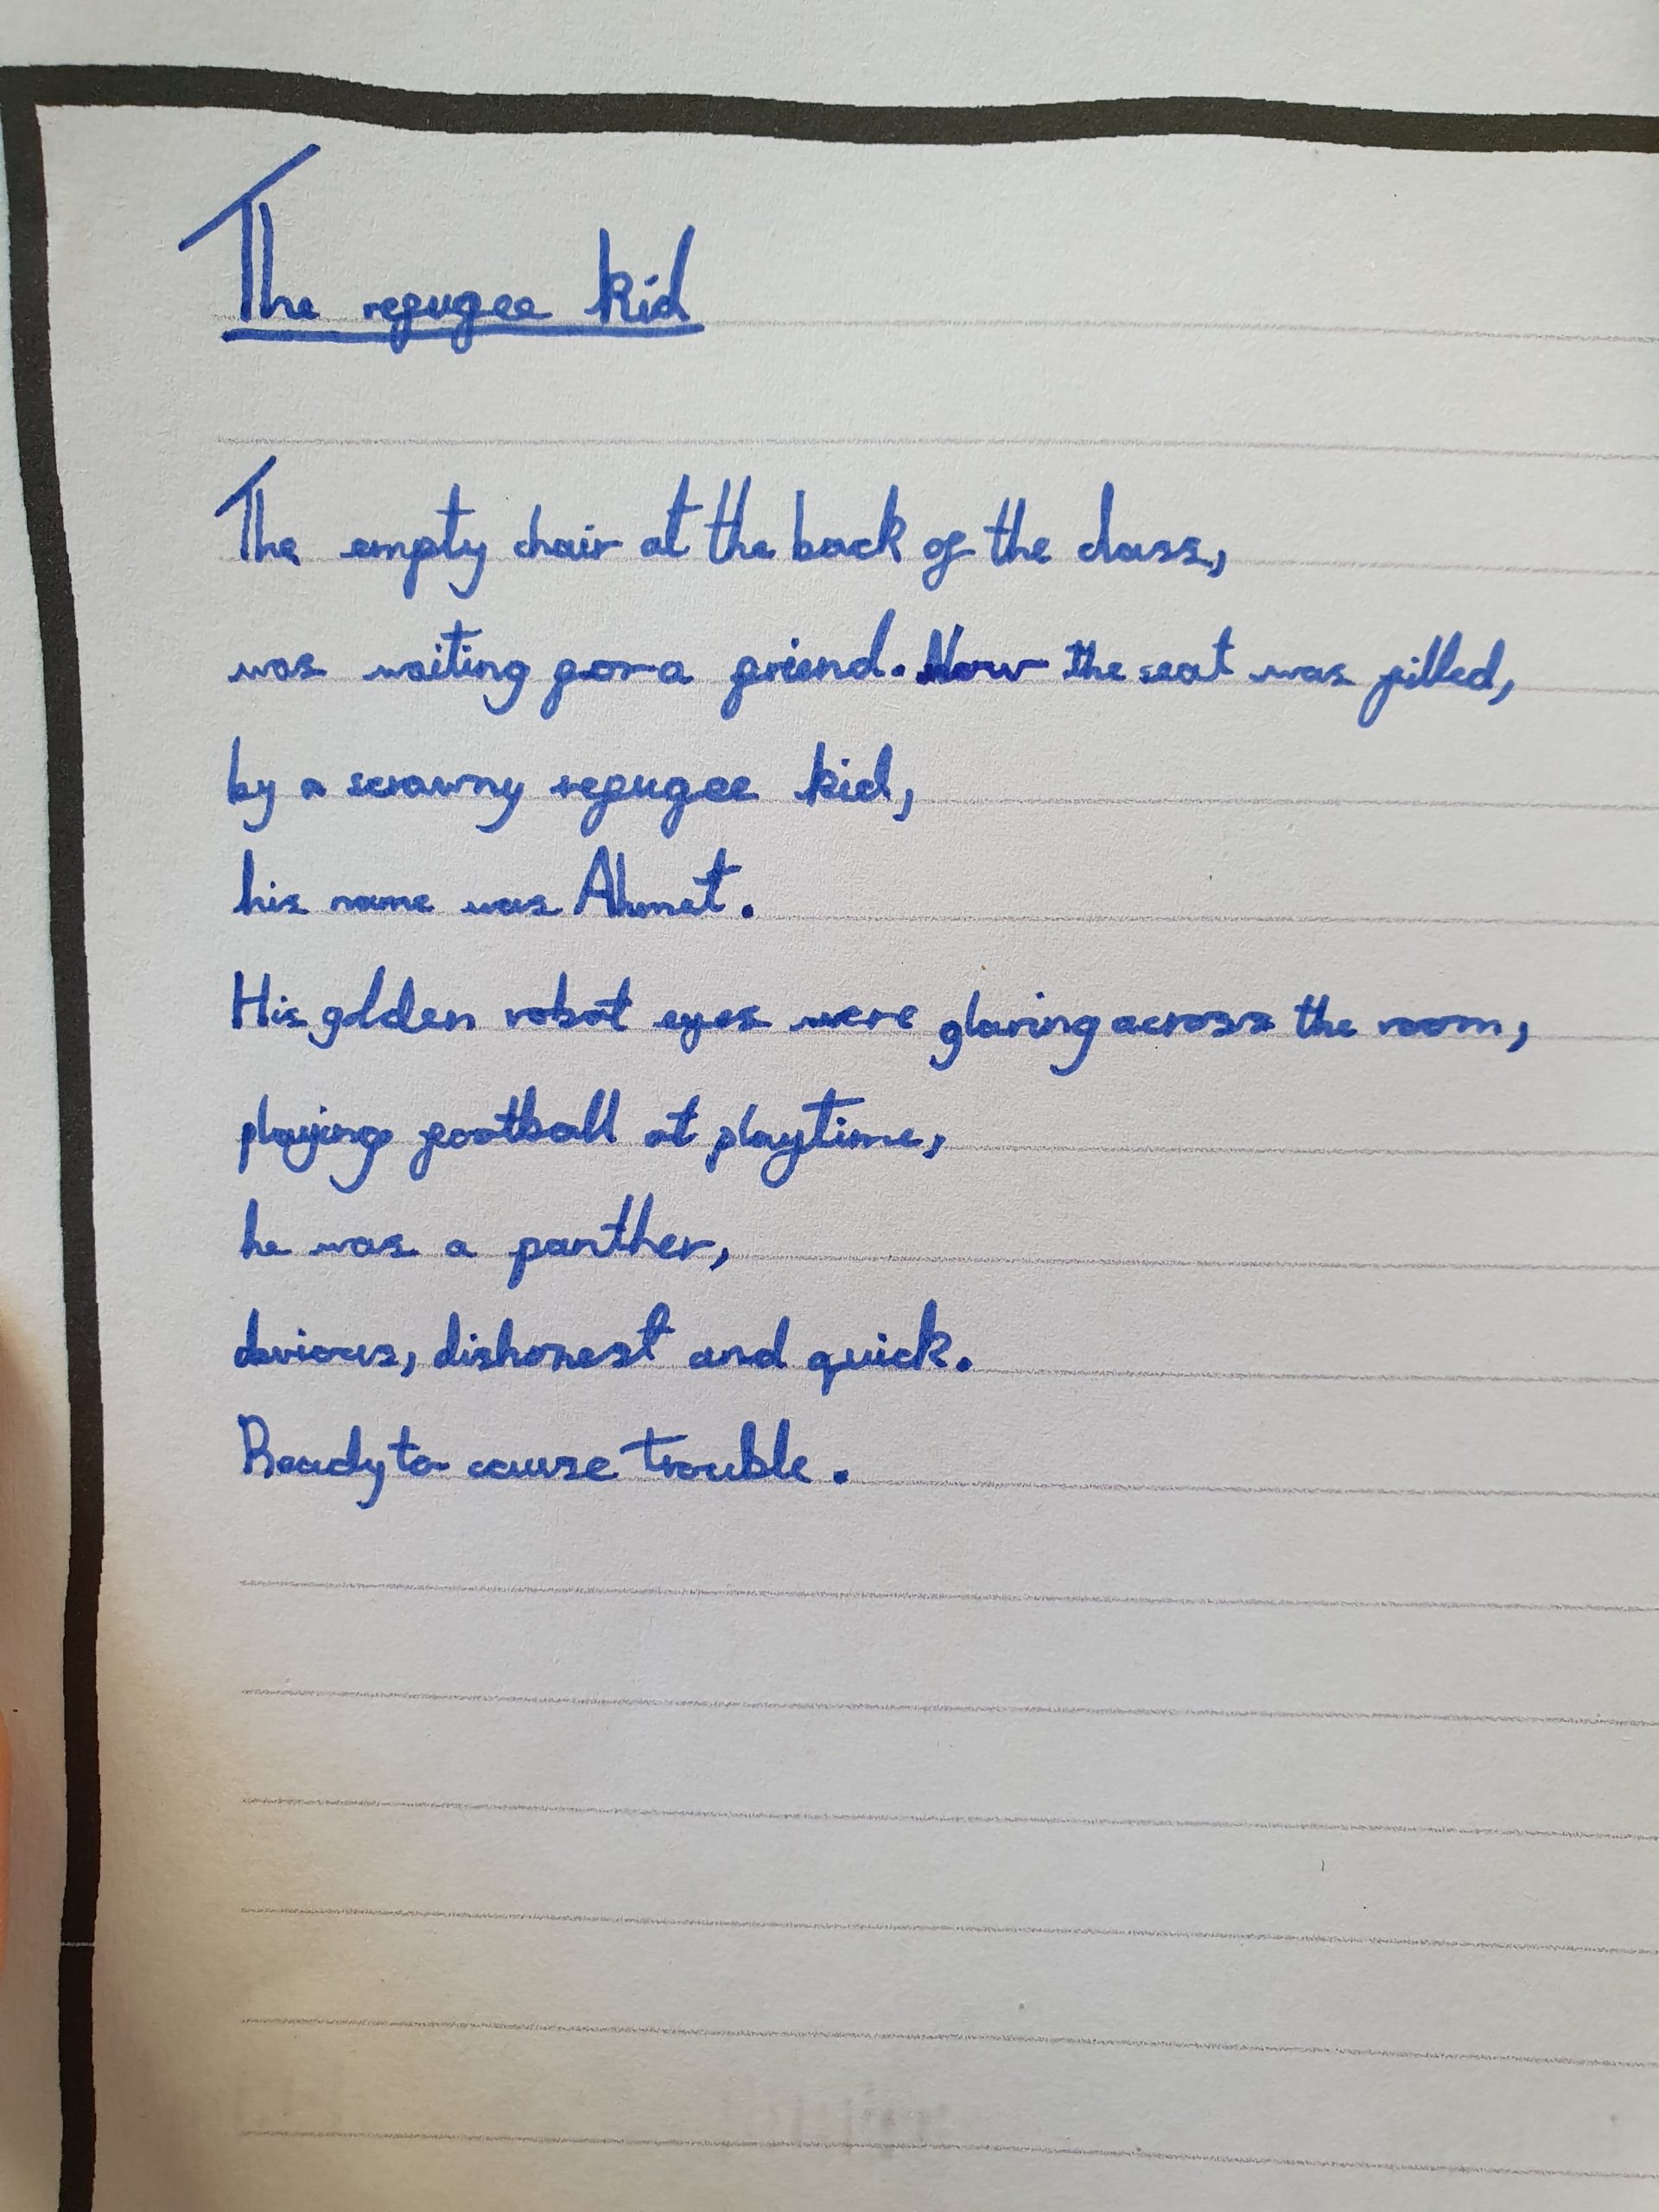 The refugee kid
The empty chair at the back of the class,
was waiting for a friend. Now the seat was filled,
by a scrawny refugee kid,
his name was Ahmet.
His golden robot eyes were glaring across the room,
playing football at playtime,
he was a panther,
devious, dishonest and quick.
Ready to cause trouble.